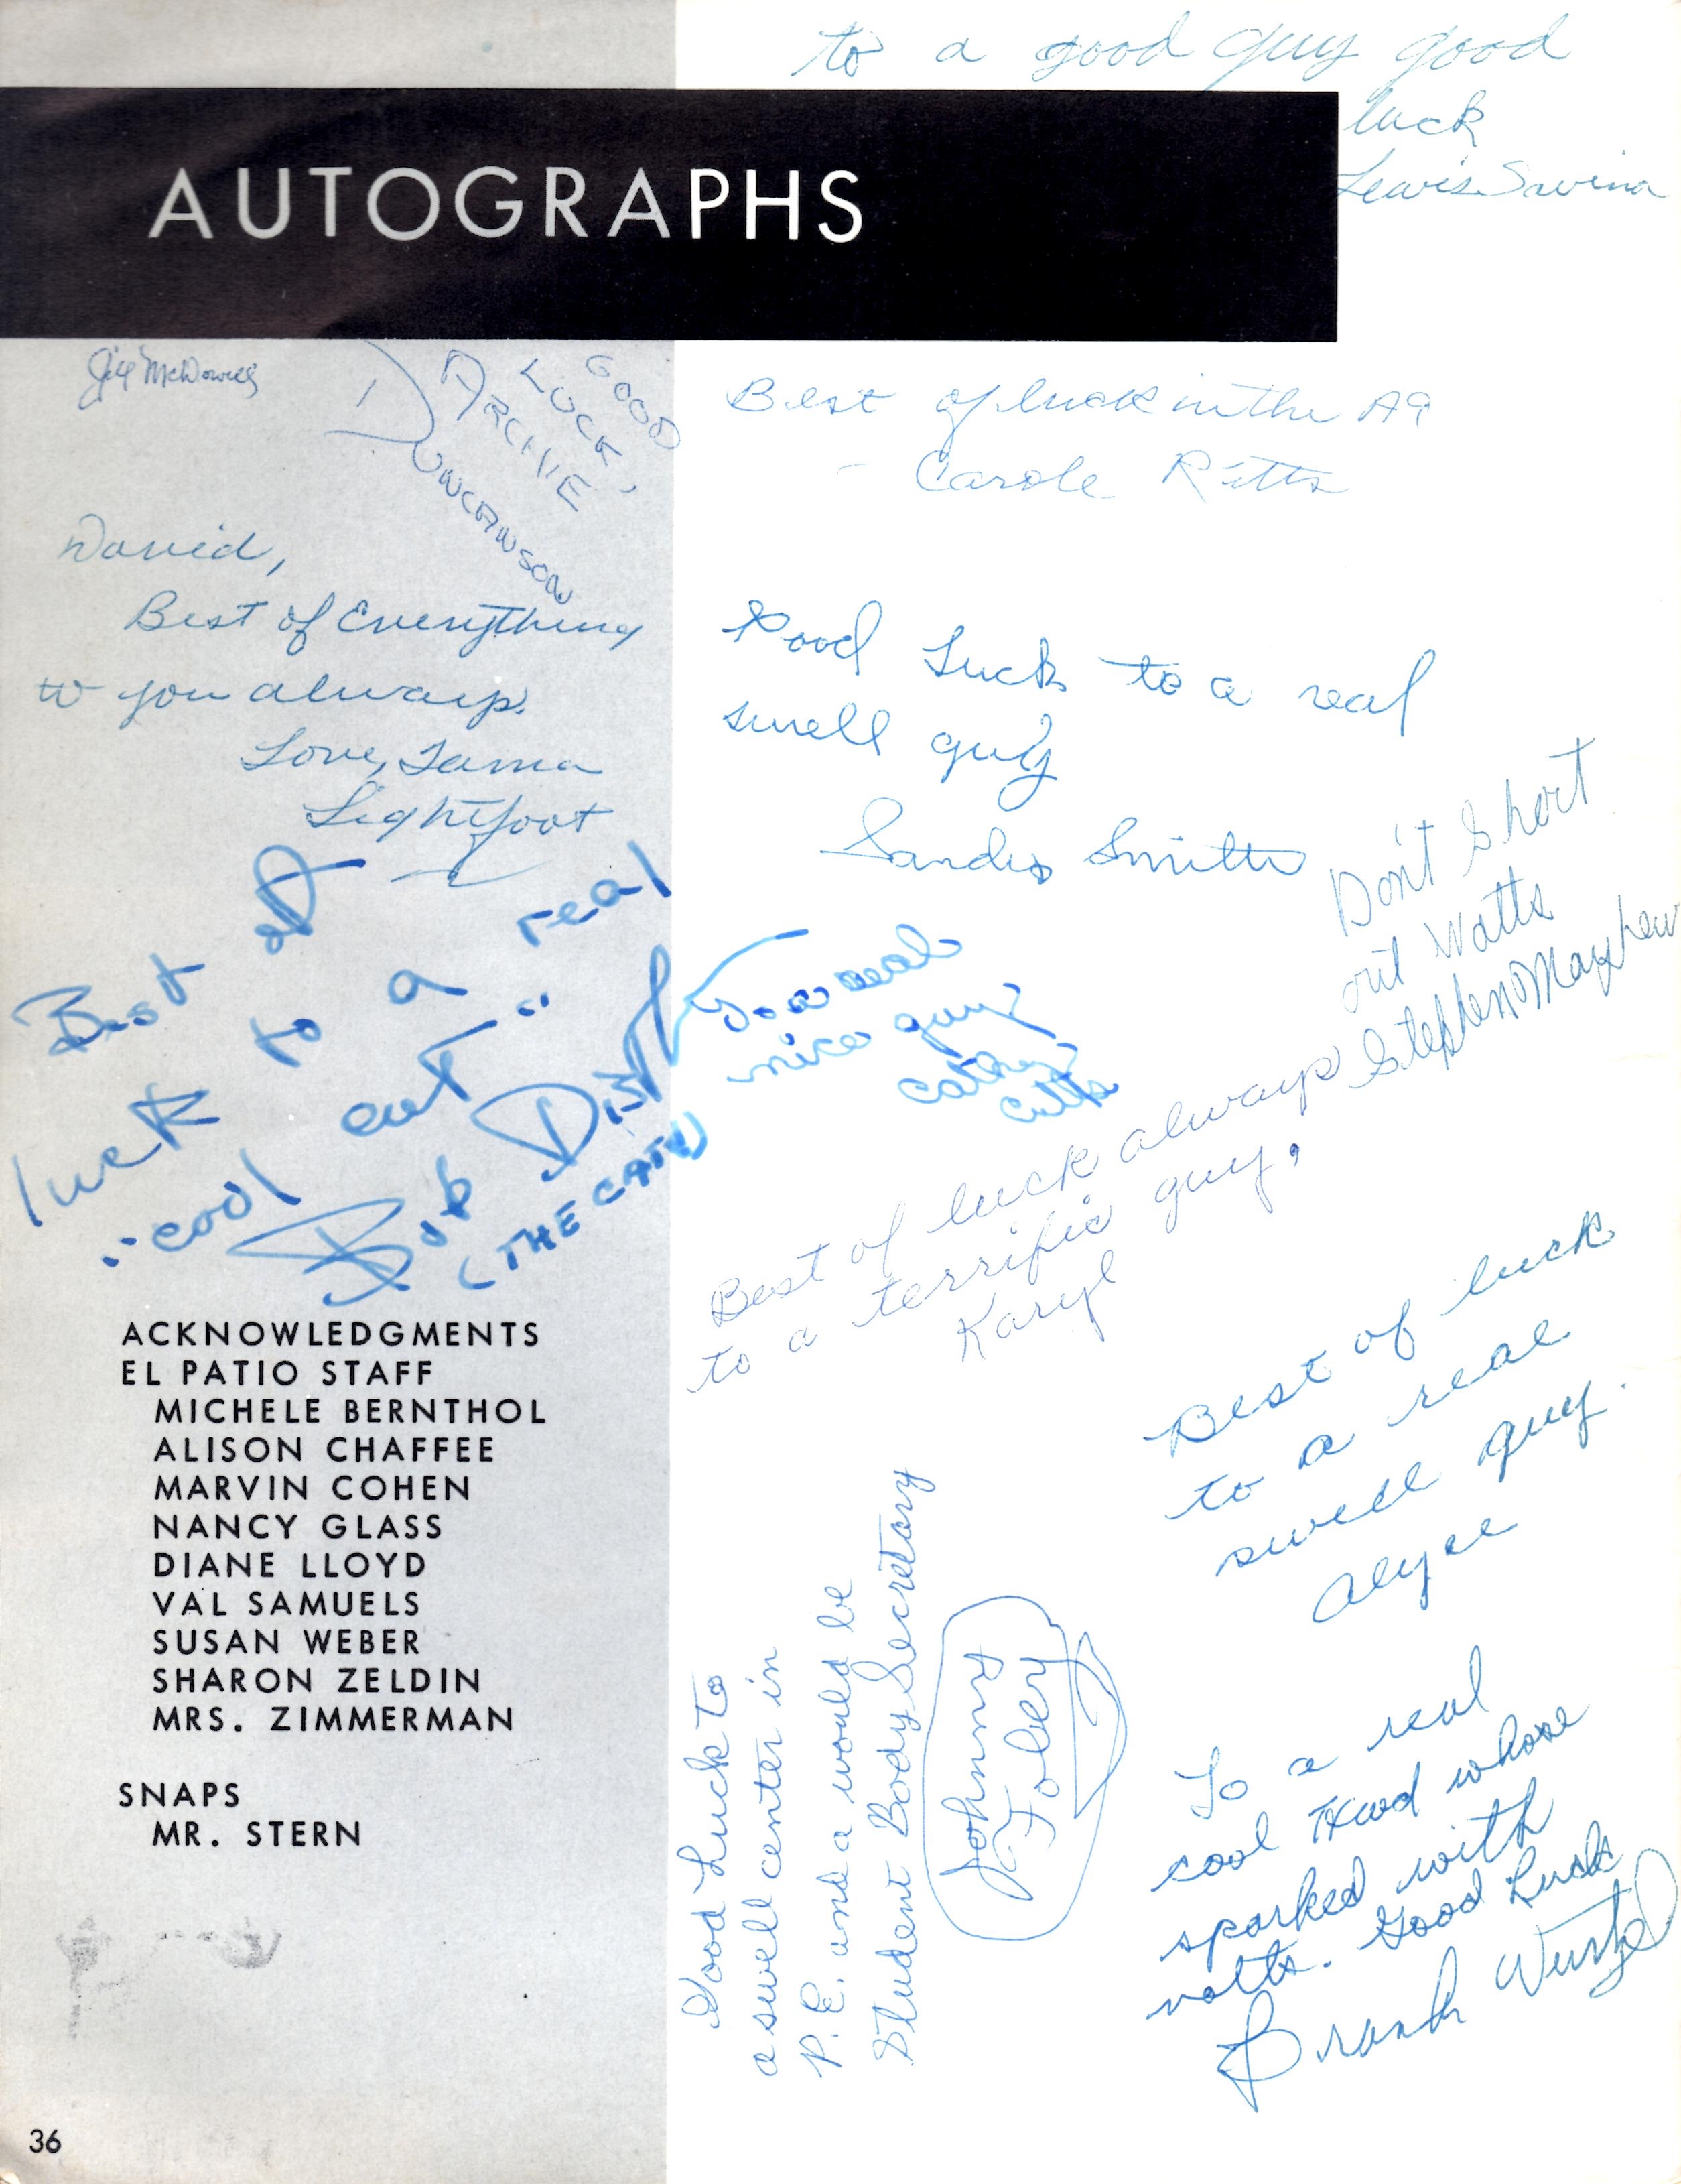 to a good guy good
luck
Lewis Savina
AUTOGRAPHS
Jill McDowell
GOOD
LUCK,
ARCHIE
DUNCANSON
Best of luck in the A9
- Carole Ritts
David,
Best of Everything
to you always.
Love, Tama
Lightfoot
Good Luck to a real
swell guy
Sandra Smith
Don't Short
out Watts
Stephen Mayhew
Best of
luck to a real
"cool cat"
Bob
(THE CAT)
To a real
nice guy
Cathy
Cutts
Best of luck always
to a terrific guy,
Karyl
Best of luck
to a real
swell guy.
Alyce
ACKNOWLEDGMENTS
EL PATIO STAFF
MICHELE BERNTHOL
ALISON CHAFFEE
MARVIN COHEN
NANCY GLASS
DIANE LLOYD
VAL SAMUELS
SUSAN WEBER
SHARON ZELDIN
MRS. ZIMMERMAN
SNAPS
MR. STERN
Good Luck to
a swell center in
P.E. and a would be
Student Body Secretary
Johnny
Tobey
To a real
cool whose
sparked with
volts. Good Luck
36